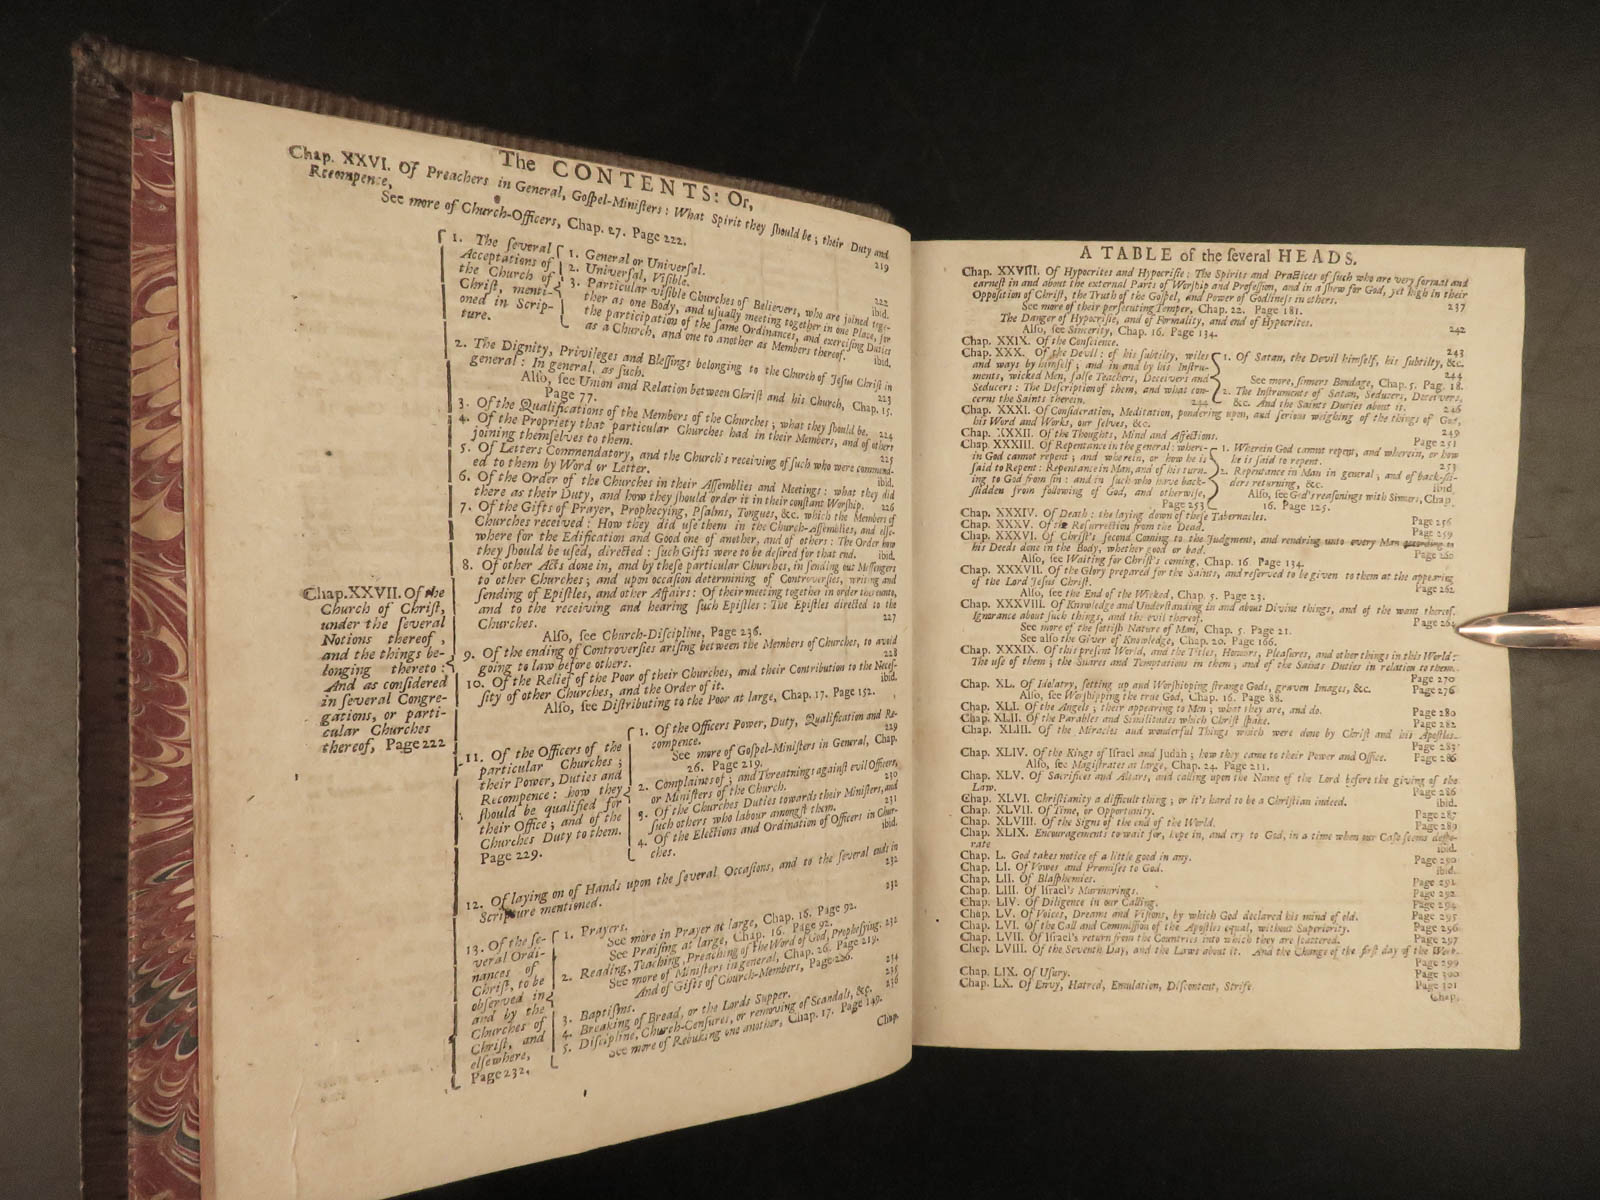 The CONTENTS: Or,
Chap. XXVI. Of Preachers in General, Gospel-Ministers: What Spirit they should be; their Duty and
Recompence, 219
See more of Church-Officers, Chap. 27. Page 222.
Chap. XXVII. Of the
Church of Christ,
under the several
Notions thereof,
and the things be-
longing thereto:
And as considered
in several Congre-
gations, or parti-
cular Churches
thereof, Page 222
1. The several
Acceptations of
the Church of
Christ, menti-
oned in Scrip-
ture.
1. General or Universal. 222
2. Universal, Visible. ibid.
3. Particular visible Churches of Believers, who are joined toge-
ther as one Body, and usually meeting together in one Place, for
the participation of the same Ordinances, and exercising Duties
as a Church, and one to another as Members thereof. ibid.
2. The Dignity, Privileges and Blessings belonging to the Church of Jesus Christ in
general: In general, as such. 223
Also, see Union and Relation between Christ and his Church, Chap. 15.
Page 77.
3. Of the Qualifications of the Members of the Churches; what they should be. 224
4. Of the Propriety that particular Churches had in their Members, and of others
joining themselves to them. 225
5. Of Letters Commendatory, and the Church's receiving of such who were commend-
ed to them by Word or Letter. ibid.
6. Of the Order of the Churches in their Assemblies and Meetings: what they did
there as their Duty, and how they should order it in their constant Worship. 226
7. Of the Gifts of Prayer, Prophecying, Psalms, Tongues, &c. which the Members of
Churches received: How they did use them in the Church-Assemblies, and else-
where for the Edification and Good one of another, and of others: The Order how
they should be used, directed: such Gifts were to be desired for that end. ibid.
8. Of other Acts done in, and by these particular Churches, in sending out Messengers
to other Churches; and upon occasion determining of Controversies, writing and
sending of Epistles, and other Affairs: Of their meeting together in order thereunto,
and to the receiving and hearing such Epistles: The Epistles directed to the
Churches. 227
Also, see Church-Discipline, Page 236.
9. Of the ending of Controversies arising between the Members of Churches, to avoid
going to law before others. 228
10. Of the Relief of the Poor of their Churches, and their Contribution to the Neces-
sity of other Churches, and the Order of it. ibid.
Also, see Distributing to the Poor at large, Chap. 17. Page 152.
11. Of the Officers of the
particular Churches;
their Power, Duties and
Recompence: how they
should be qualified for
their Office; and of the
Churches Duty to them.
Page 229.
1. Of the Officers Power, Duty, Qualification and Re-
compence. 229
See more of Gospel-Ministers in General, Chap.
26. Page 219.
2. Complaints of; and Threatnings against evil Officers,
or Ministers of the Church. 230
3. Of the Churches Duties towards their Ministers, and
such others who labour amongst them. 231
4. Of the Elections and Ordination of Officers in Chur-
ches. ibid.
12. Of laying on of Hands upon the several Occasions, and to the several ends in
Scripture mentioned. 232
13. Of the se-
veral Ordi-
nances of
Christ, to be
observed in
and by the
Churches of
Christ, and
elsewhere,
Page 232.
1. Prayers. 232
See more in Prayer at large, Chap. 16. Page 92.
See Praising at large, Chap. 16. Page 92.
2. Reading, Teaching, Preaching of the Word of God, Prophesying. 232
See more of Ministers in general, Chap. 26. Page 219.
And of Gifts of Church-Members, Page 226.
3. Baptisms. 234
4. Breaking of Bread, or the Lords Supper. 235
5. Discipline, Church-Censures, or removing of Scandals, &c. 236
See more of Rebuking one another, Chap. 17. Page 149.
Chap.
A TABLE of the several HEADS.
Chap. XXVIII. Of Hypocrites and Hypocrisie: The Spirits and Practices of such who are very formal and
earnest in and about the external Parts of Worship and Profession, and in a shew for God, yet high in their
Opposition of Christ, the Truth of the Gospel, and Power of Godliness in others. 237
See more of their persecuting Temper, Chap. 22. Page 181.
The Danger of Hypocrisie, and of Formality, and end of Hypocrites. 242
Also, see Sincerity, Chap. 16. Page 134.
Chap. XXIX. Of the Conscience. 243
Chap. XXX. Of the Devil: of his subtilty, wiles
and ways by himself; and in and by his Instru-
ments, wicked Men, false Teachers, Deceivers and
Seducers: The Description of them, and what con-
cerns the Saints therein. 244
1. Of Satan, the Devil himself, his subtilty, &c.
244
See more, sinners Bondage, Chap. 5. Pag. 18.
2. The Instruments of Satan, Seducers, Deceivers,
&c. And the Saints Duties about it. 246
Chap. XXXI. Of Consideration, Meditation, pondering upon, and serious weighing of the things of God,
his Word and Works, our selves, &c. 249
Chap. XXXII. Of the Thoughts, Mind and Affections. Page 251
Chap. XXXIII. Of Repentance in the general: where-
in God cannot repent; and wherein, or how he is
said to Repent: Repentance in Man, and of his turn-
ing to God from sin: and in such who have back-
slidden from following of God, and otherwise,
Page 253
1. Wherein God cannot repent, and wherein, or how
he is said to repent. 253
2. Repentance in Man in general; and of back-sli-
ders returning, &c. ibid.
Also, see God's reasonings with Sinners, Chap.
16. Page 125.
Chap. XXXIV. Of Death: the laying down of these Tabernacles. Page 256
Chap. XXXV. Of the Resurrection from the Dead. Page 259
Chap. XXXVI. Of Christ's second Coming to the Judgment, and rendring unto every Man according to
his Deeds done in the Body, whether good or bad. Page 260
Also, see Waiting for Christ's coming, Chap. 16 Page 134.
Chap. XXXVII. Of the Glory prepared for the Saints, and reserved to be given to them at the appearing
of the Lord Jesus Christ. Page 262
Also, see the End of the Wicked, Chap. 5. Page 23.
Chap. XXXVIII. Of Knowledge and Understanding in and about Divine things, and of the want thereof.
Ignorance about such things, and the evil thereof. Page
See more of the sottish Nature of Man, Chap. 5. Page 21.
See also the Giver of Knowledge, Chap. 20. Page 166.
Chap. XXXIX. Of this present World, and the Titles, Honours, Pleasures, and other things in this World:
The use of them; the Snares and Temptations in them; and of the Saints Duties in relation to them.
Page 270
Chap. XL. Of Idolatry, setting up and Worshipping strange Gods, graven Images, &c. Page 276
Also, see Worshipping the true God, Chap. 16. Page 88.
Chap. XLI. Of the Angels; their appearing to Men; what they are, and do. Page 280
Chap. XLII. Of the Parables and Similitudes which Christ spake. Page 282
Chap. XLIII. Of the Miracles and wonderful Things which were done by Christ and his Apostles.
Page 283
Chap. XLIV. Of the Kings of Israel and Judah; how they came to their Power and Office. Page 286
Also, see Magistrates at large, Chap. 24. Page 211.
Chap. XLV. Of Sacrifices and Altars, and calling upon the Name of the Lord before the giving of the
Law. Page 286
Chap. XLVI. Christianity a difficult thing; or it's hard to be a Christian indeed. ibid.
Chap. XLVII. Of Time, or Opportunity. Page 287
Chap. XLVIII. Of the Signs of the end of the World. Page 289
Chap. XLIX. Encouragements to wait for, hope in, and cry to God, in a time when our Case seems despe-
rate ibid.
Chap. L. God takes notice of a little good in any. Page 290
Chap. LI. Of Vowes and Promises to God. ibid.
Chap. LII. Of Blasphemies. Page 291
Chap. LIII. Of Israel's Murmurings. Page 292
Chap. LIV. Of Diligence in our Calling. Page 294
Chap. LV. Of Voices, Dreams and Visions, by which God declared his mind of old. Page 295
Chap. LVI. Of the Call and Commission of the Apostles equal, without Superiority. Page 296
Chap. LVII. Of Israel's return from the Countries into which they are scattered. Page 297
Chap. LVIII. Of the Seventh Day, and the Laws about it. And the Change of the first day of the Week.
Page 299
Chap. LIX. Of Usury. Page 300
Chap. LX. Of Envy, Hatred, Emulation, Discontent, Strife. Page 301
Chap.